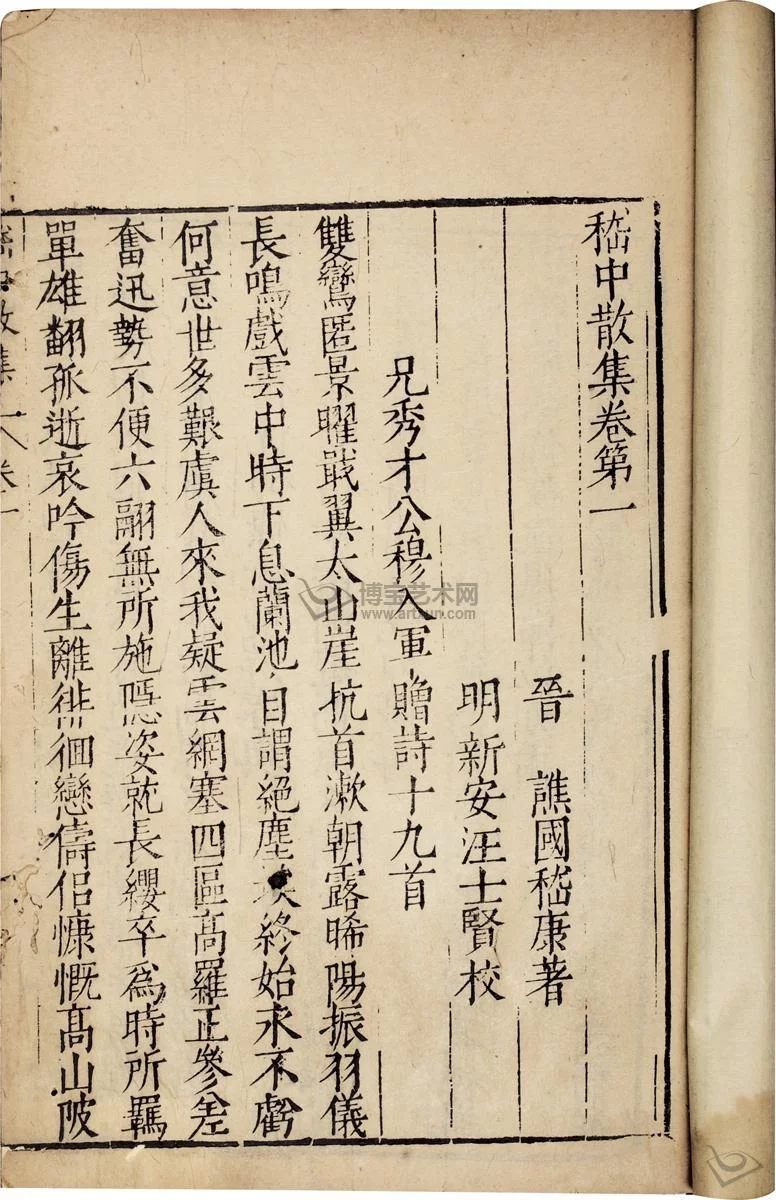 嵇中散集卷第一
晉 譙國嵇康著
明新安汪士賢校
兄秀才公穆入軍贈詩十九首
雙鸞匿景曜戢翼太山崖抗首漱朝露晞陽振羽儀
長鳴戲雲中時下息蘭池自謂絕塵埃終始永不虧
何意世多艱虞人來我疑雲網塞四區高羅正參差
奮迅勢不便六翮無所施隱姿就長纓卒為時所羈
單雄翻孤逝哀吟傷生離徘徊戀儔侶慷慨高山陂
嵇中散集 卷一
博宝艺术网
www.artxun.com